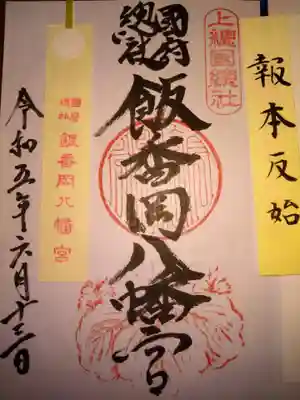 報本反始
上總国總社
國府
總社
飯香岡八幡宮
國府
總社
飯香岡八幡宮
令和五年六月十三日